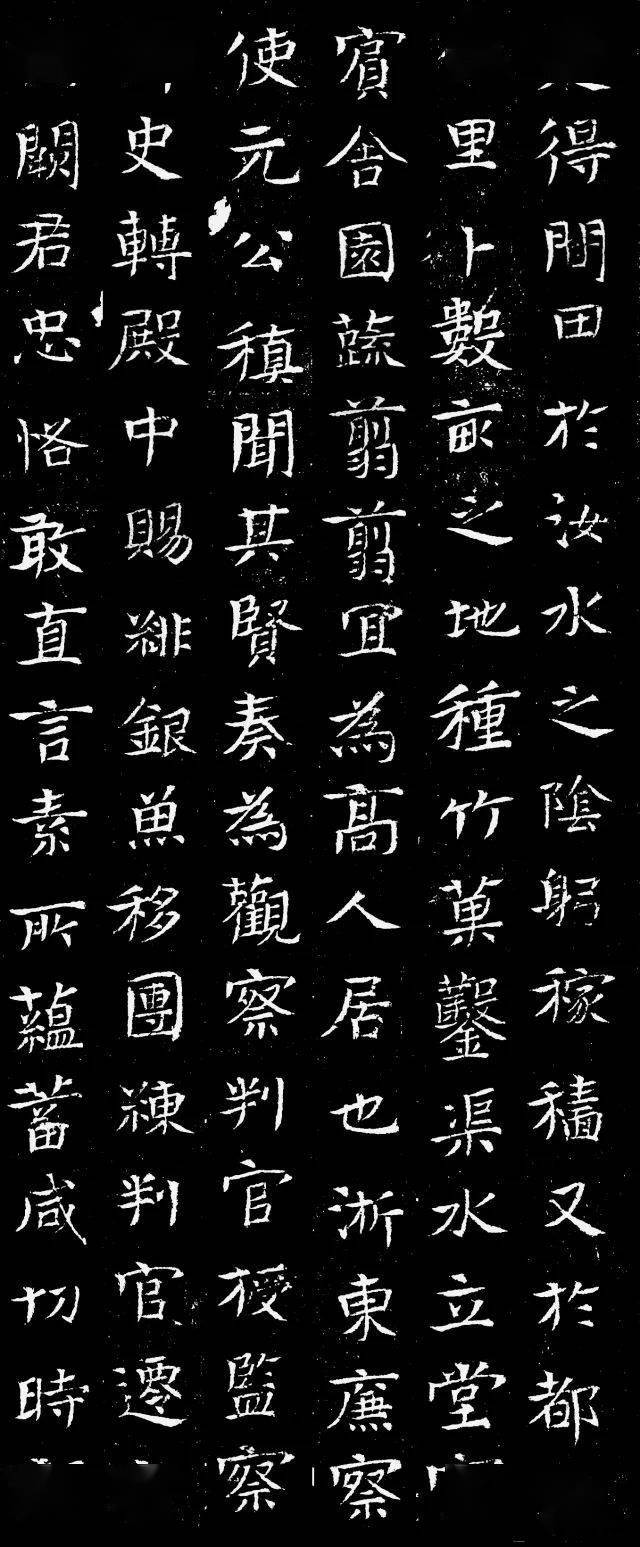 得閒田於汝水之陰躬稼穡又於都
里卜數畝之地種竹菓鑿渠水立堂
賓舍園蔬翦翦冝為髙人居也浙東廉察
使元公稹聞其賢奏為觀察判官授監察
史轉殿中賜緋銀魚移團練判官遷
闕君忠恪敢直言素所蘊蓄咸切時